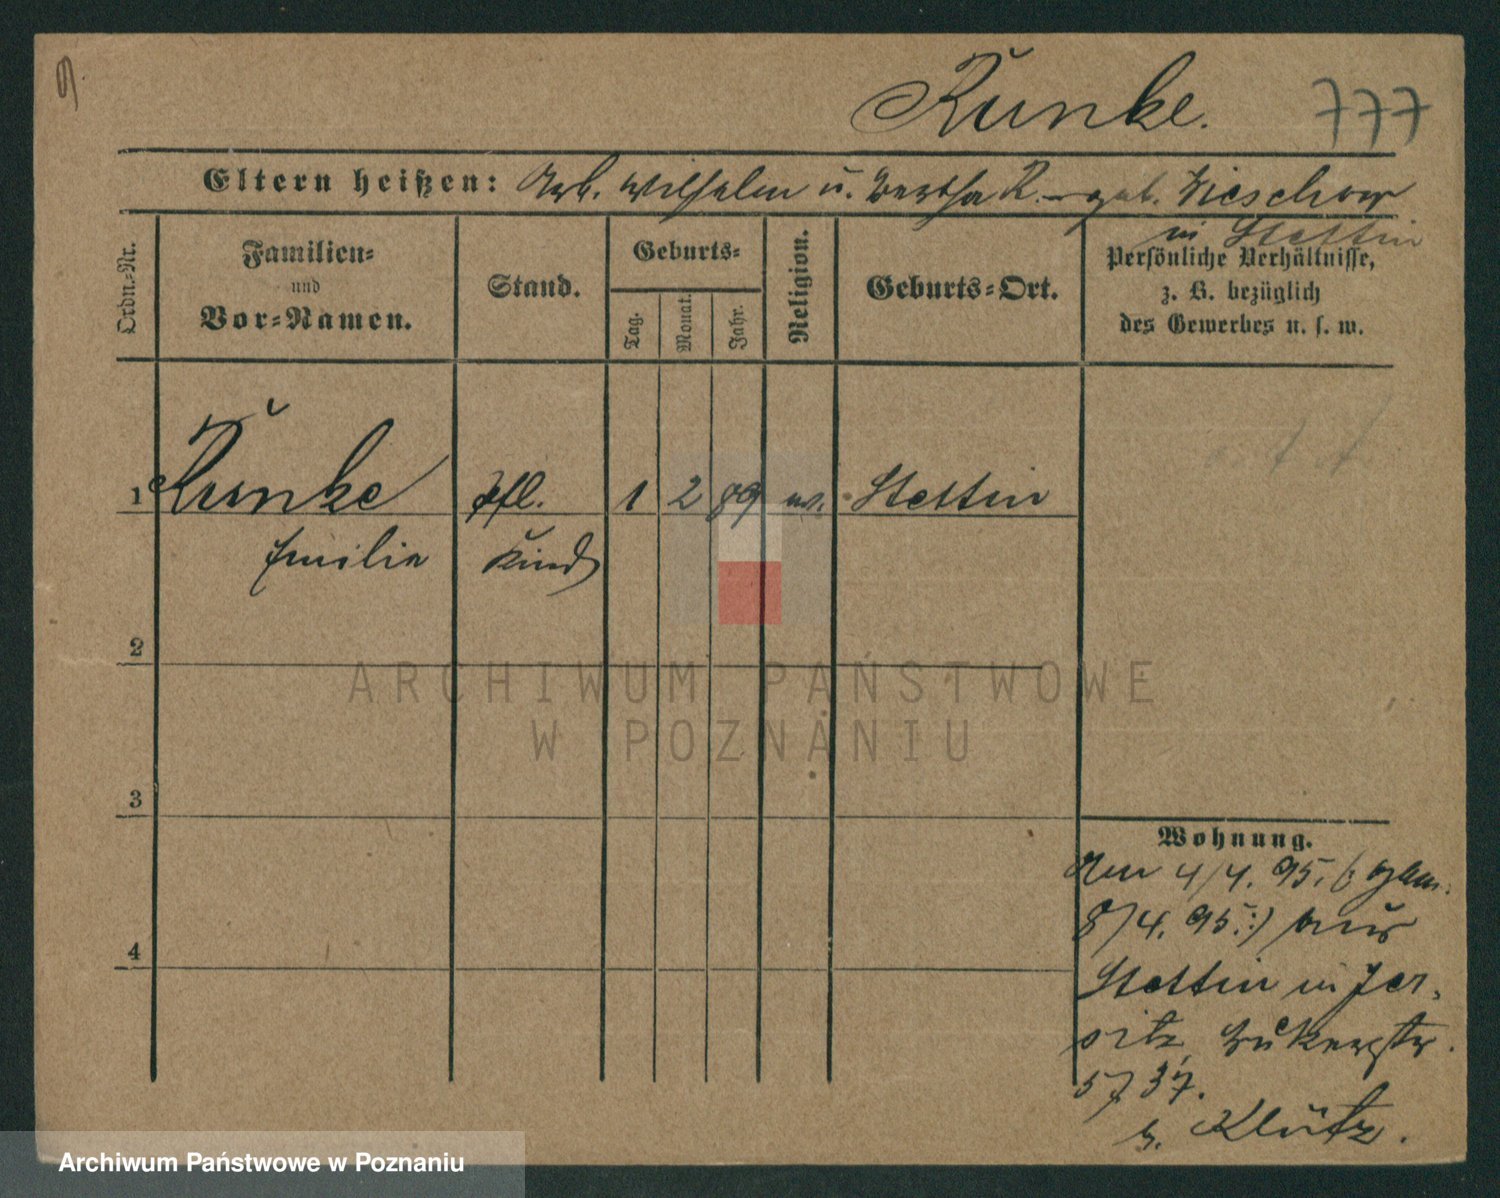 Kunke. 777
Eltern heißen: Arb. Wilhelm u. Bertha R. – geb.
in Stettin
Ordn.-Nr.
Familien-
und
Vor-Namen.
Stand.
Geburts-
Tag.
Monat.
Jahr.
Religion.
Geburts-Ort.
Persönliche Verhältnisse,
z. B. bezüglich
des Gewerbes u. s. w.
1 Kunke Pfl. 1 2 89 ev. Stettin
Emilie Kind
2
3
4
Wohnung.
Am 4/4. 95. (: gem.
8/4. 95 :) aus
Stettin in Jer-
sitz, Bukerstr.
37.
b. Klütz.
ARCHIWUM PAŃSTWOWE
W POZNANIU
Archiwum Państwowe w Poznaniu